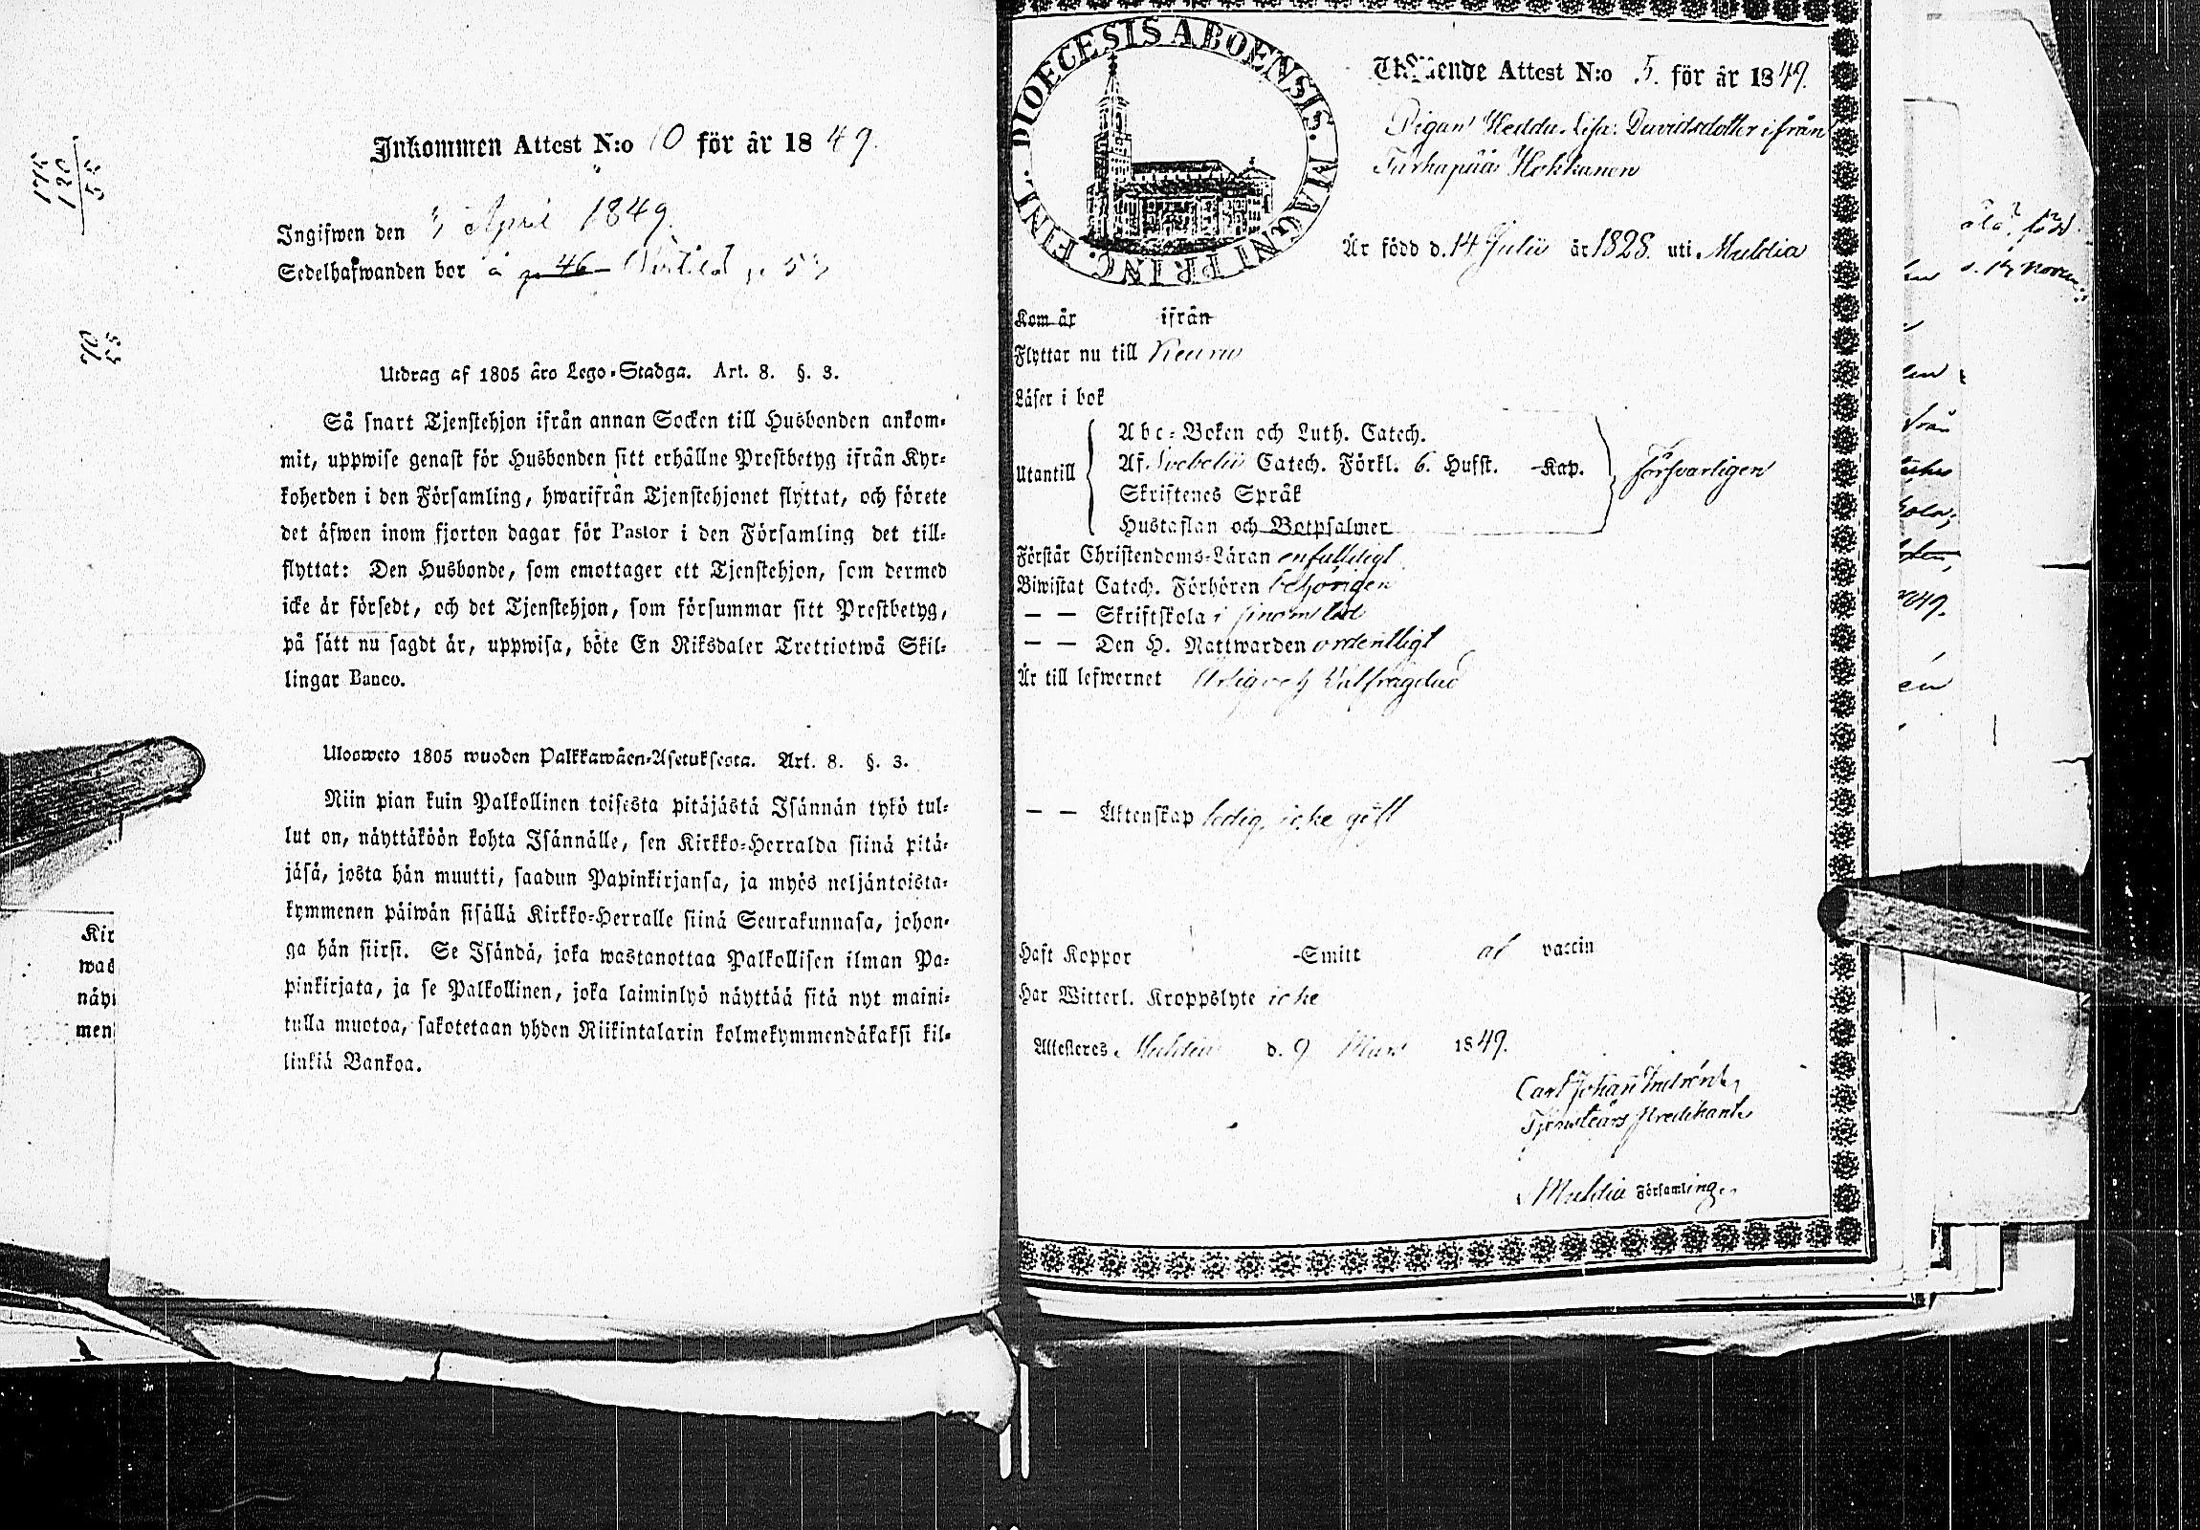 Inkommen Attest N:o 10 för år 1849.
Ingifwen den April 1849.
Sedelhafwanden bor å p 46
Utdrag af 1805 års Lego-Stadga. Art. 8. §. 3.
Så snart Tjenstehjon ifrån annan Socken till Husbonden ankom-
mit, uppwise genast för Husbonden sitt erhållne Prestbetyg ifrån Kyr-
koherden i den Församling, hwarifrån Tjenstehjonet flyttat, och förete
det äfwen inom fjorton dagar för Pastor i den Församling det till-
flyttat: Den Husbonde, som emottager ett Tjenstehjon, som dermed
icke är försedt, och det Tjenstehjon, som försummar sitt Prestbetyg,
på sätt nu sagdt är, uppwisa, böte En Riksdaler Trettiotwå Skil-
lingar Banco.
Ulosweto 1805 wuoden Palkkawäen-Asetuksesta. Art. 8. §. 3.
Niin pian kuin Palkollinen toisesta pitäjästä Isännän tykö tul-
lut on, näyttäköön kohta Isännälle, sen Kirkko-Herralda siinä pitä-
jäsä, josta hän muutti, saadun Papinkirjansa, ja myös neljäntoista-
kymmenen päiwän sisällä Kirkko-Herralle siinä Seurakunnasa, johon-
ga hän siirsi. Se Isändä, joka wastanottaa Palkollisen ilman Pa-
pinkirjata, ja se Palkollinen, joka laiminlyö näyttää sitä nyt maini-
tulla muotoa, sakotetaan yhden Riikintalarin kolmekymmendäkaksi kil-
linkiä Bankoa.
DIOECESIS ABOENSIS. MAGNI PRINC. FINL.
Attest N:o 5. för år 1849.
Pigan Hedda Lisa Davidsdotter ifrån
Tarhapää Hokkanen
Är född d. 14 Julii år 1828. uti Muldia
Kom år ifrån
Flyttar nu till Keuru
Läser i bok
Utantill
Abc-Boken och Luth. Catech.
Af Svebelii Catech. Förkl. 6. Hufst. -Kap.
Skriftenes Språk
Hustaflan och Botpsalmer
försvarligen
Förstår Christendoms-Läran enfaldigt
Biwistat Catech. Förhören behörigen
— — Skriftskola i
— — Den H. Nattwarden ordentligt
Är till lefwernet ärlig och välfrägdad
— — Äktenskap ledig, icke gift
Haft Koppor -Smitt af vaccin
Har Witterl. Kroppslyte icke
Attesteres Muldia d. 9 Mars 1849.
Carl Johan
Tjenstgörs Predikant
Muldia Församling.
Kir
wad
näy
men